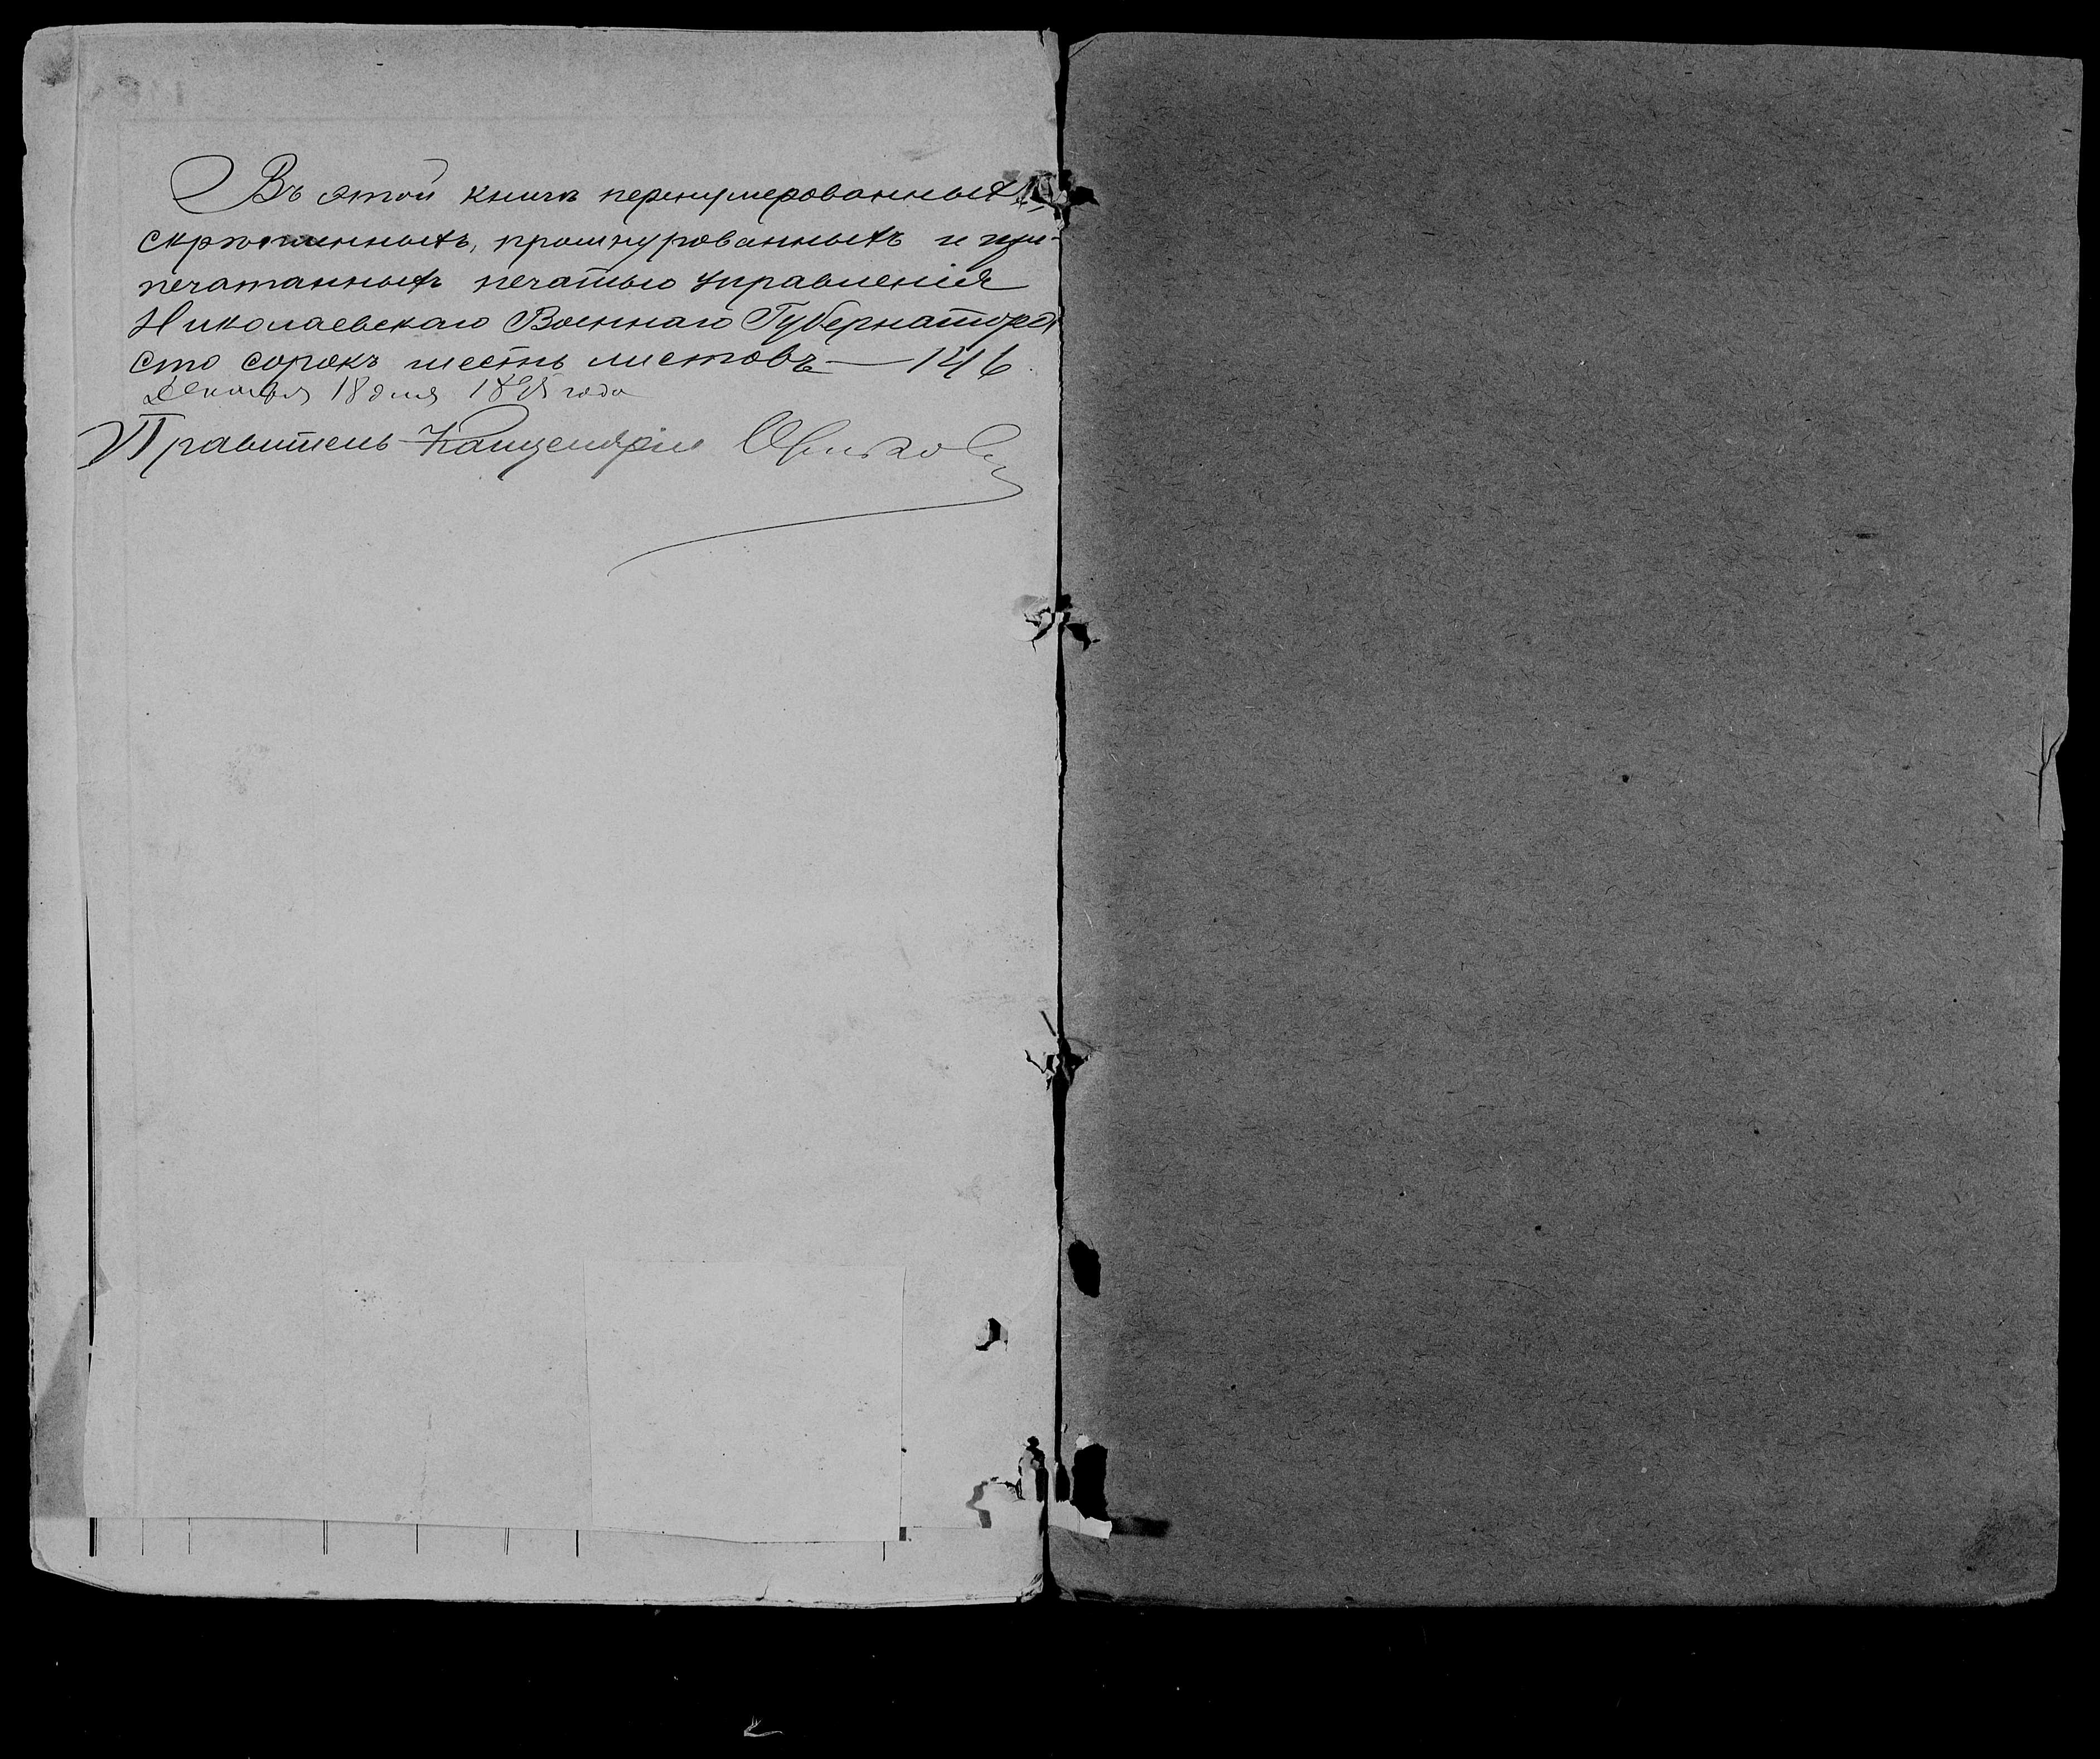 Въ этой книгѣ перенумерованныхъ,
скрѣпленныхъ, прошнурованныхъ и при-
печатанныхъ печатью Управленія
Николаевскаго Военнаго Губернатора
сто сорокъ шесть листовъ — 146.
Декабря 18 дня года
Правитель Канцеляріи